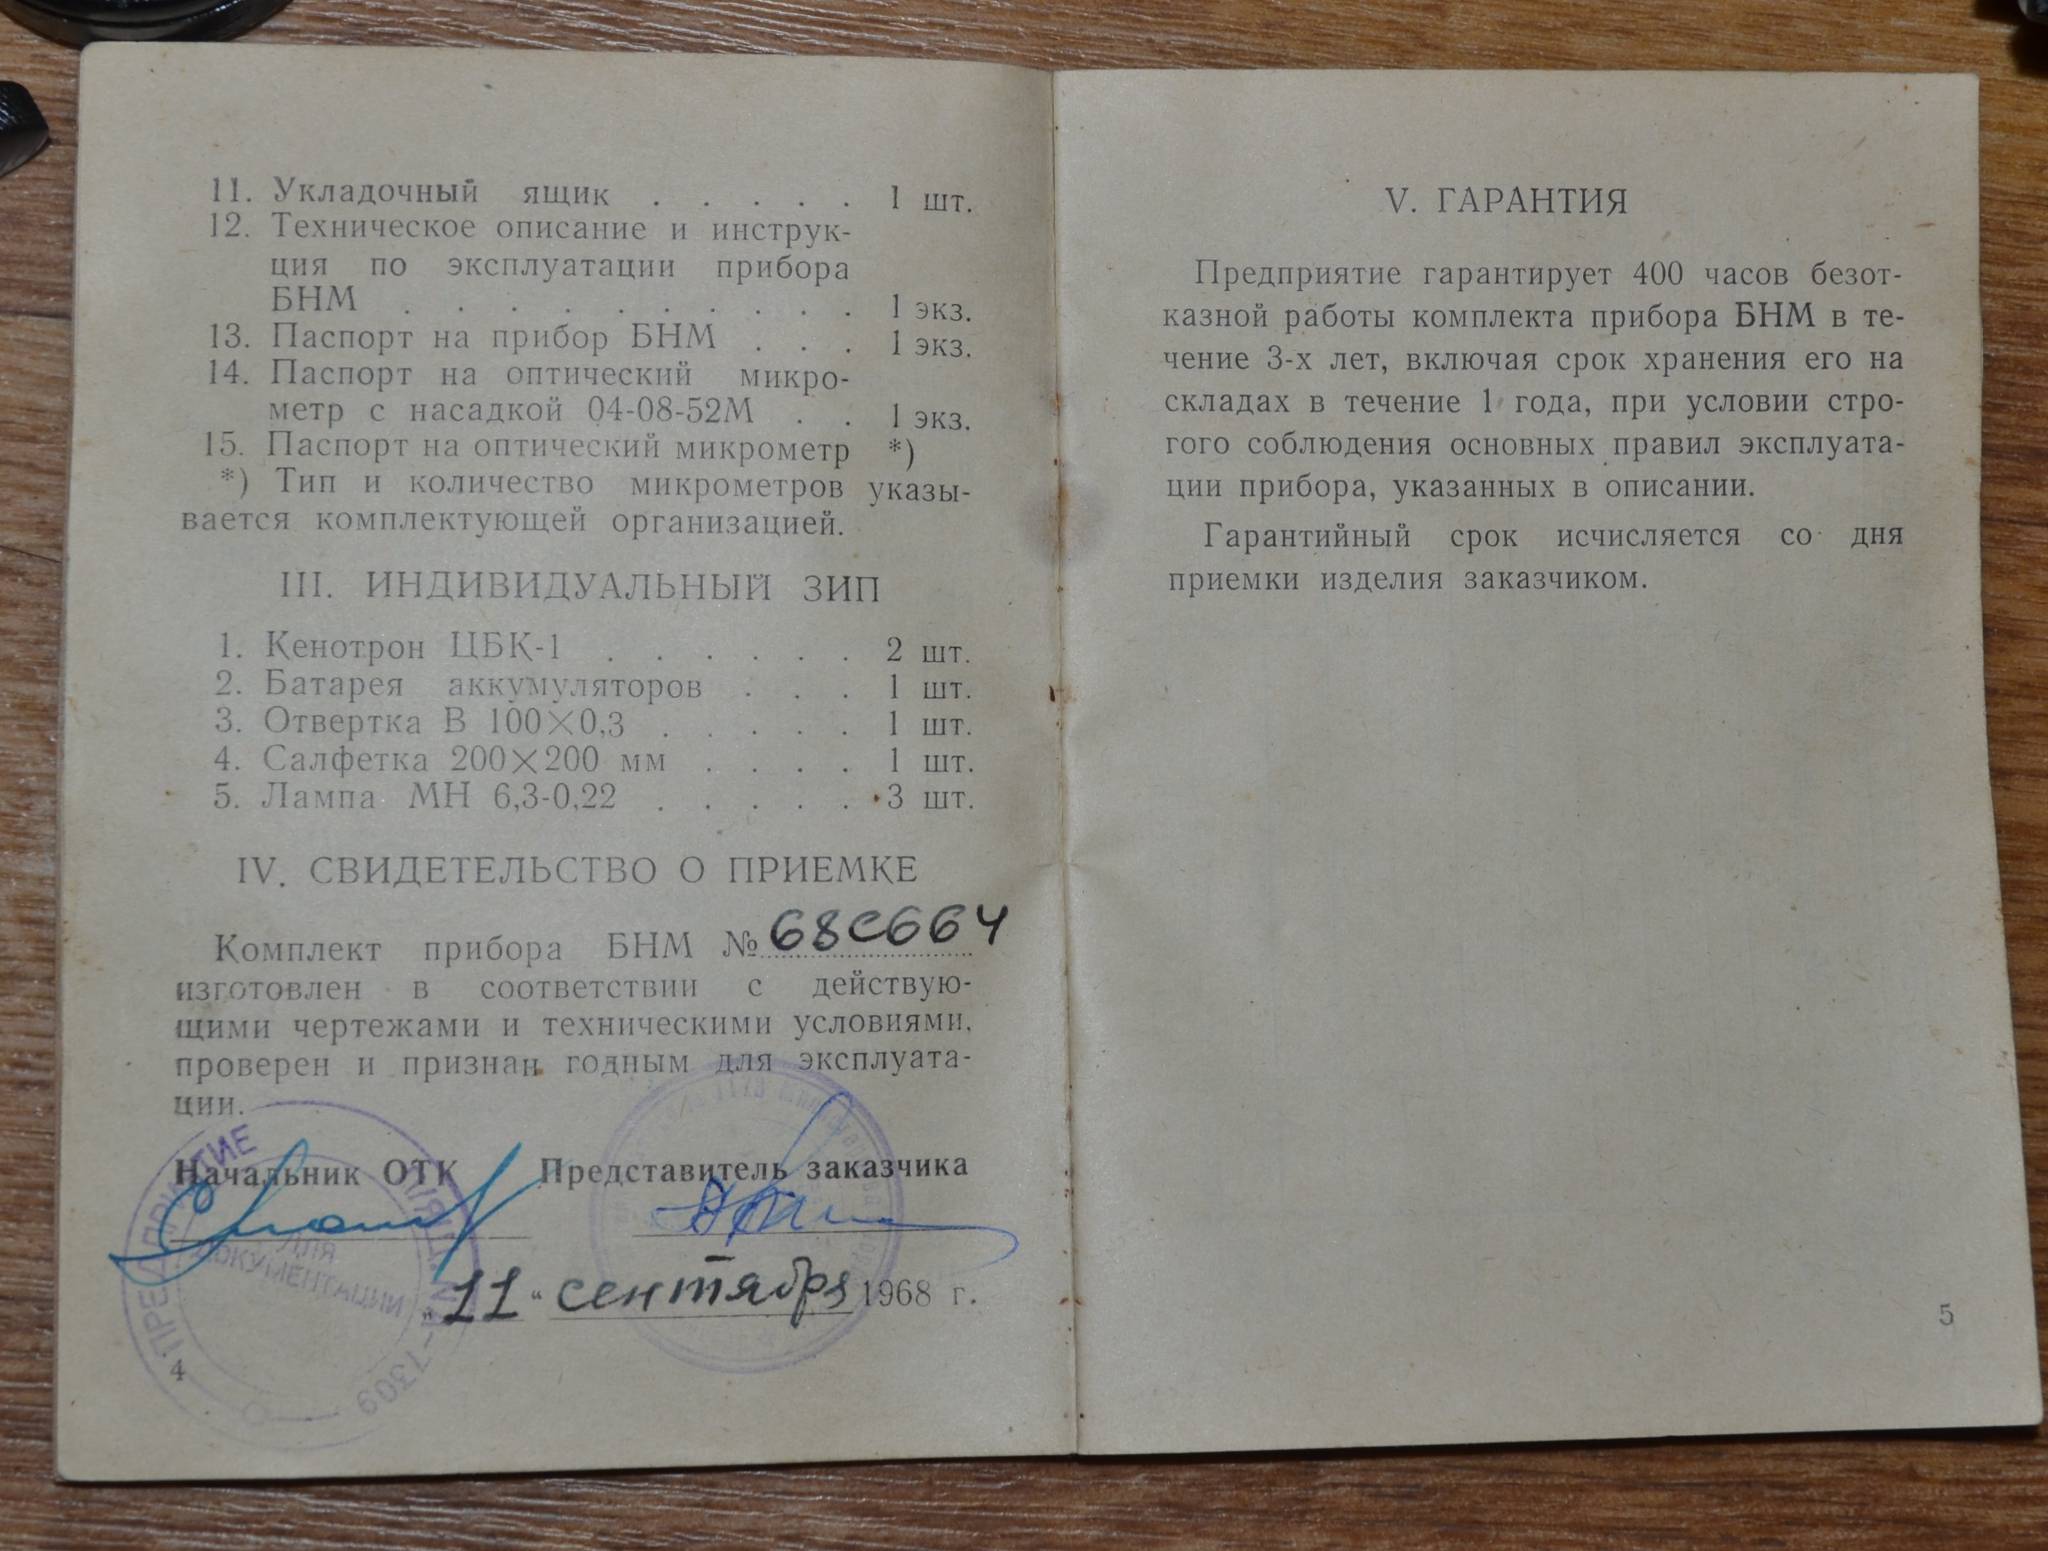 11. Укладочный ящик . . . . . 1 шт.
12. Техническое описание и инструк-
ция по эксплуатации прибора
БНМ . . . . . . . . . 1 экз.
13. Паспорт на прибор БНМ . . . 1 экз.
14. Паспорт на оптический микро-
метр с насадкой 04-08-52М . . 1 экз.
15. Паспорт на оптический микрометр *)
*) Тип и количество микрометров указы-
вается комплектующей организацией.
III. ИНДИВИДУАЛЬНЫЙ ЗИП
1. Кенотрон ЦБК-1 . . . . . . 2 шт.
2. Батарея аккумуляторов . . . 1 шт.
3. Отвертка В 100×0,3 . . . . . 1 шт.
4. Салфетка 200×200 мм . . . . 1 шт.
5. Лампа МН 6,3-0,22 . . . . . 3 шт.
IV. СВИДЕТЕЛЬСТВО О ПРИЕМКЕ
Комплект прибора БНМ № 68С664
изготовлен в соответствии с действую-
щими чертежами и техническими условиями,
проверен и признан годным для эксплуата-
ции.
Начальник ОТК Представитель заказчика
„11“ сентября 1968 г.
ПРЕДПРИЯТИЕ
ДЛЯ
ДОКУМЕНТАЦИИ
4
V. ГАРАНТИЯ
Предприятие гарантирует 400 часов безот-
казной работы комплекта прибора БНМ в те-
чение 3-х лет, включая срок хранения его на
складах в течение 1 года, при условии стро-
гого соблюдения основных правил эксплуата-
ции прибора, указанных в описании.
Гарантийный срок исчисляется со дня
приемки изделия заказчиком.
5